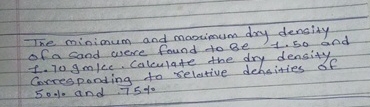 The minimum and maximum dry density
of a sand were found to be 1.50 and
1.70 gm/cc. Calculate the dry density
Corresponding to relative densities of
50% and 75%